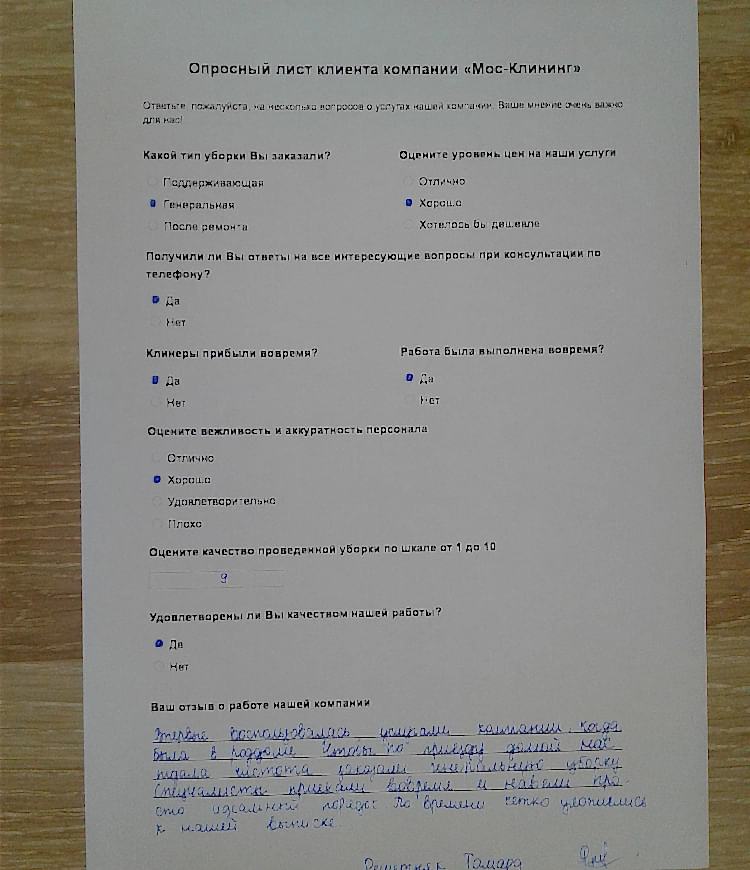 Опросный лист клиента компании «Мос-Клининг»
Ответьте, пожалуйста, на несколько вопросов о услугах нашей компании. Ваше мнение очень важно
для нас!
Какой тип уборки Вы заказали?
Поддерживающая
Генеральная
После ремонта
Оцените уровень цен на наши услуги
Отлично
Хорошо
Хотелось бы дешевле
Получили ли Вы ответы на все интересующие вопросы при консультации по
телефону?
Да
Нет
Клинеры прибыли вовремя?
Да
Нет
Работа была выполнена вовремя?
Да
Нет
Оцените вежливость и аккуратность персонала
Отлично
Хорошо
Удовлетворительно
Плохо
Оцените качество проведенной уборки по шкале от 1 до 10
9
Удовлетворены ли Вы качеством нашей работы?
Да
Нет
Ваш отзыв о работе нашей компании
Впервые воспользовалась услугами компании, когда
была в роддоме. Чтобы по приезду домой нас
ждала чистота заказали генеральную уборку
Специалисты приехали вовремя и навели про-
сто идеальный порядок. По времени четко уложились
к нашей выписке.
Решетняк Тамара